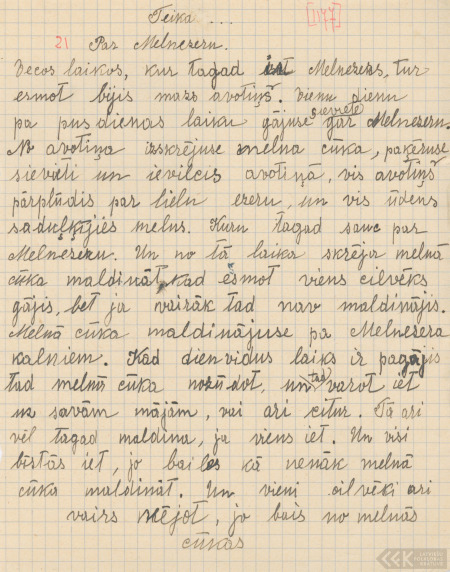 Teika ...
[177]
21 Par Melnezeru.
Vecos laikos, kur tagad ist Melnezers, tur
esmot bijis mazs avotiņš. Vienu dienu
pa pusdienas laiku gājuse sieviete gar Melnezeru.
No avotiņa izskrējuse melna cūka, pakēruse
sievieti un ievilcis avotiņā, vis avotiņš
pārplūdis par lielu ezeru, un vis ūdens
saduļķijies melns. Kuru tagad sauc par
Melnezeru. Un no tā laika skrēja melnā
cūka maldināt, kad esmot viens cilvēks
gājis, bet ja vairāk tad nav maldinājis.
Melnā cūka maldinājuse pa Melnezera
kalniem. Kad dienvidus laiks ir pagājis
tad melnā cūka nozūdot, un tad varot iet
uz savām mājām, vai ari citur. Tā ari
vēl tagad maldina, ja viens iet. Un visi
bīstās iet, jo bailes kā nenāk melnā
cūka maldināt. Un vieni cilvēki ari
vairs nējot, jo bais no melnās
cūkas
LFK